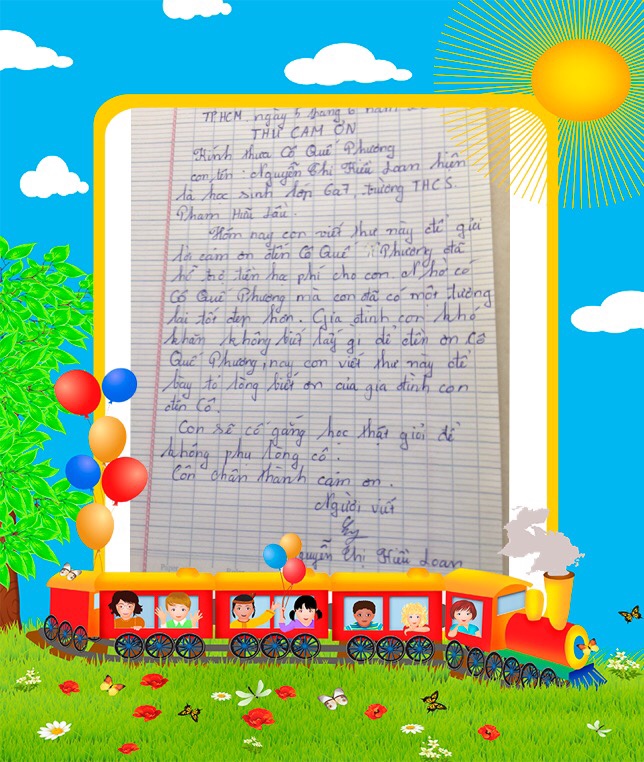 TP.HCM, ngày 5 tháng 6 năm
THƯ CẢM ƠN
Kính thưa Cô Quế Phương
con tên: Nguyễn Thị Hiếu Loan hiện
là học sinh lớp 6a7, trường THCS.
Phạm Hữu Lầu.
Hôm nay con viết thư này để gửi
lời cảm ơn đến Cô Quế Phương đã
hổ trợ tiền học phí cho con. Nhờ có
Cô Quế Phương mà con đã có một tương
lai tốt đẹp hơn. Gia đình con khó
khăn không biết lấy gì để đền ơn Cô
Quế Phương, nay con viết thư này để
bày tỏ lòng biết ơn của gia đình con
đến Cô.
Con sẽ cố gắng học thật giỏi để
không phụ lòng cô.
Con chân thành cảm ơn.
Người viết
guyễn Thị Hiếu Loan